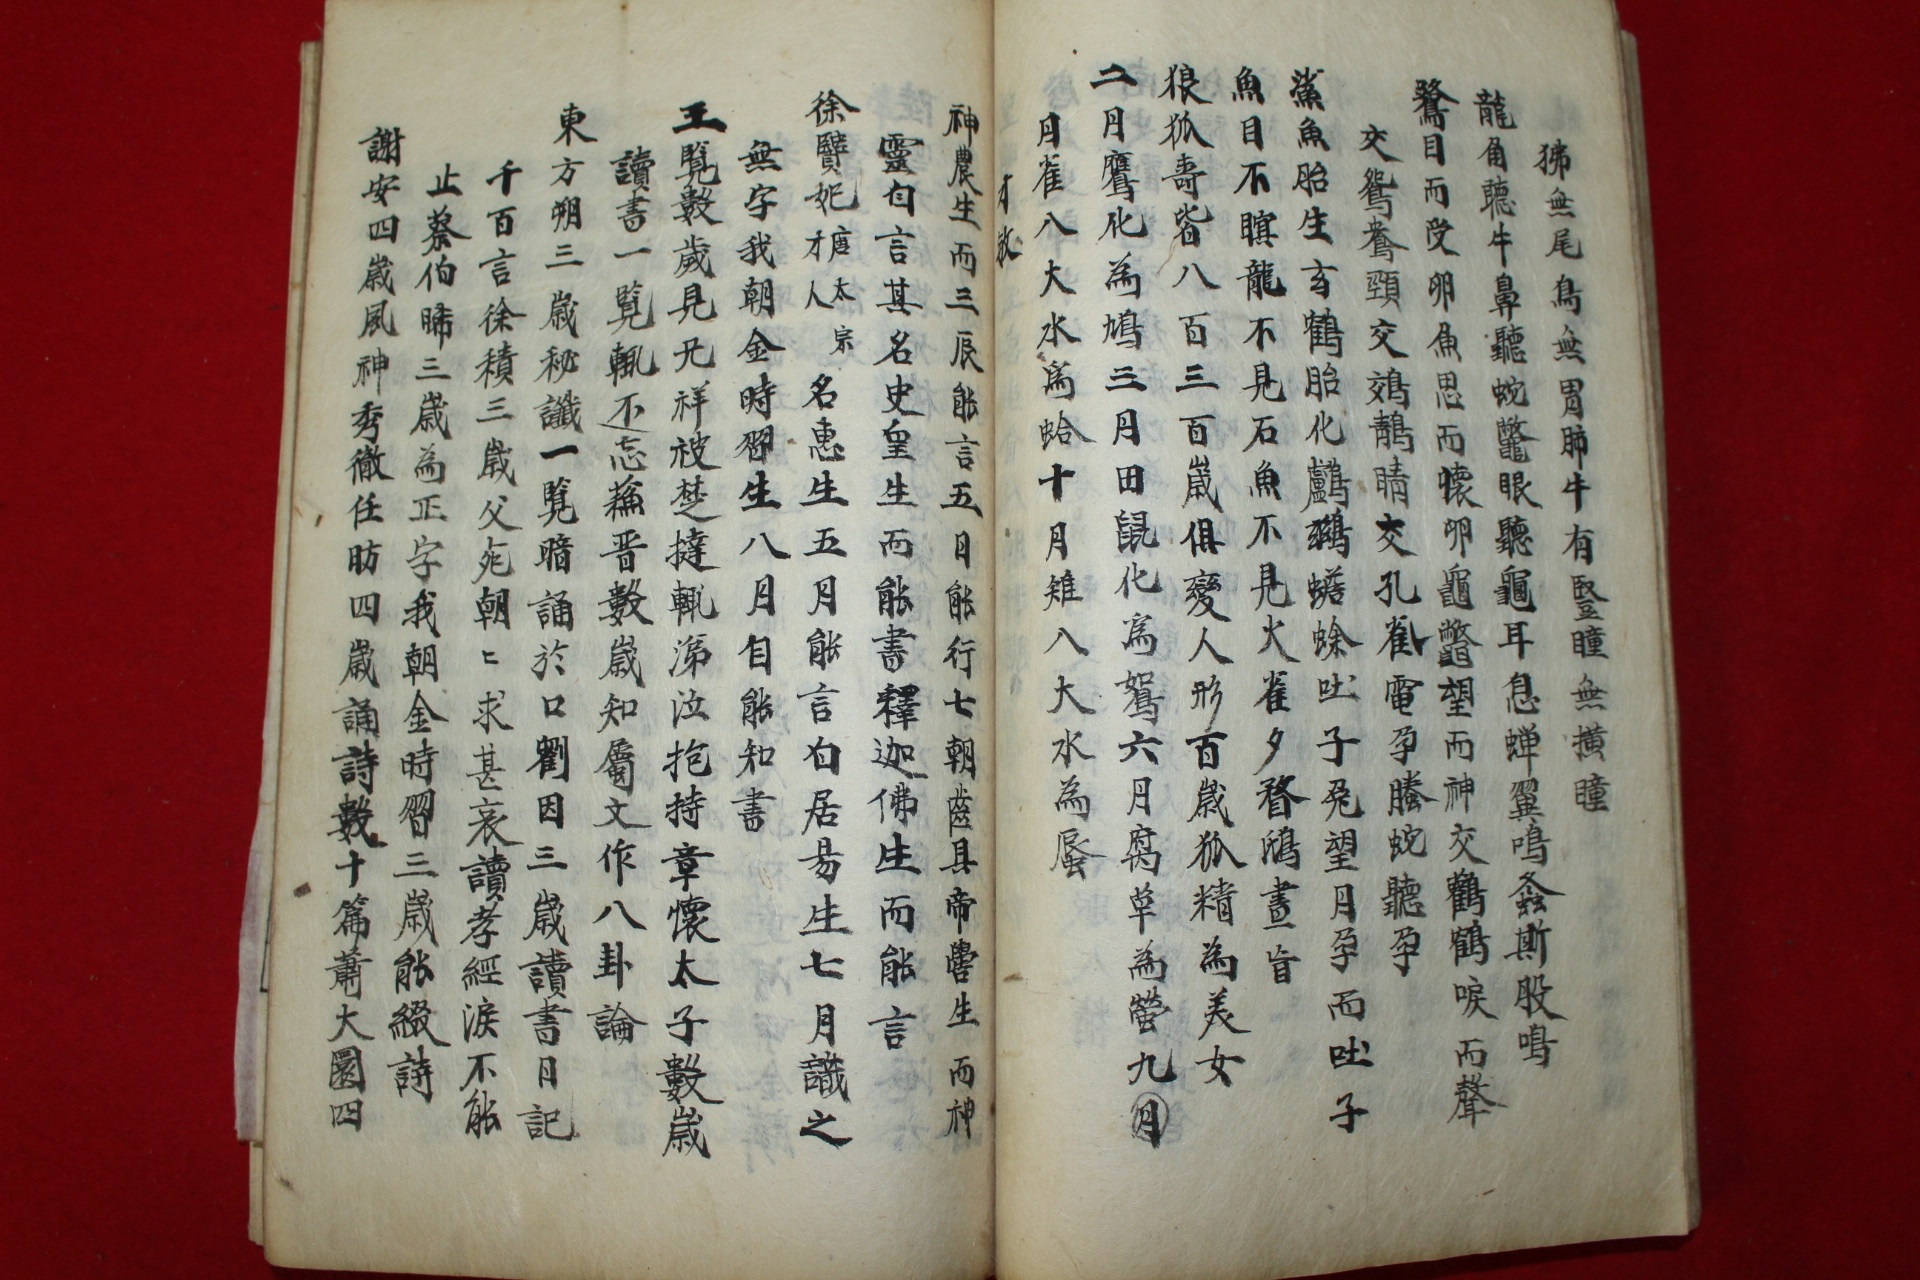 狒無尾鳥無胃肺牛有竪瞳無橫瞳
龍角聽牛鼻聽蛇鼈眼聽龜耳息蝉翼鳴螽斯股鳴
鵞目而受卵魚思而懷卵龜鼈望而神交鶴鶴唳而聲
交鴛鴦頸交鵁鶄睛交孔雀電孕騰蛇聽孕
鯊魚胎生玄鶴胎化鸕鷀蟾蜍吐子兔望月孕而吐子
魚目不瞑龍不見石魚不見火雀夕瞀鴟晝盲
狼狐壽皆八百三百歲俱變人形百歲狐精為美女
二月鷹化為鳩三月田鼠化為鴽六月腐草為螢九月
月雀八大水為蛤十月雉八大水為蜃
才敏
神農生而三辰能言五日能行七朝齒具帝嚳生而神
靈自言其名史皇生而能書釋迦佛生而能言
徐賢妃唐太宗才人名惠生五月能言白居易生七月識之
無字我朝金時習生八月自能知書
王覽數歲見兄祥被楚撻輒涕泣抱持章懷太子數歲
讀書一覽輒不忘蘓晋數歲知屬文作八卦論
東方朔三歲秘讖一覽暗誦於口劉因三歲讀書日記
千百言徐積三歲父死朝ヒ求甚哀讀孝經淚不能
止蔡伯晞三歲為正字我朝金時習三歲能綴詩
謝安四歲風神秀徹任昉四歲誦詩數十篇蕭大圜四